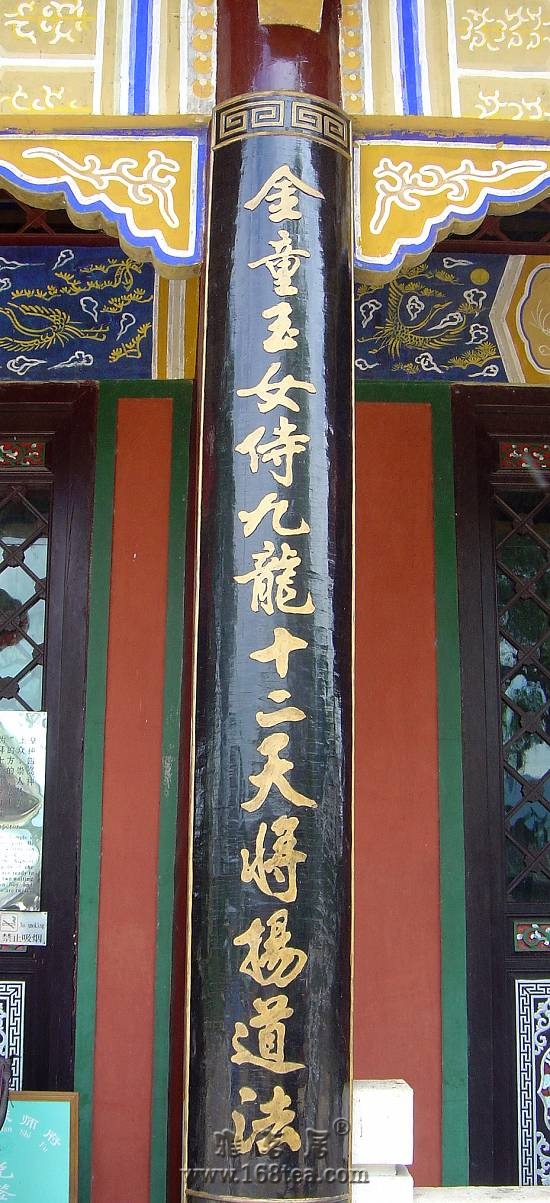 金童玉女侍九龍十二天將揚道法
No smoking
禁止吸烟
雅茗居®
www.168tea.com